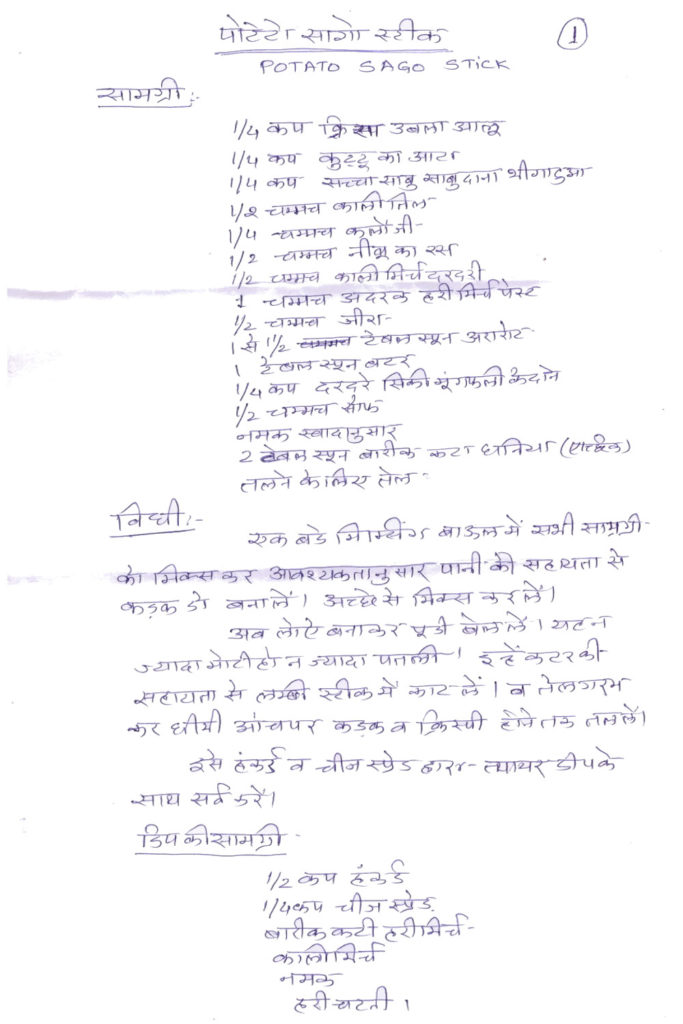 पोटेटो सागो स्टीक
1
POTATO SAGO STICK
सामग्री :-
1/4 कप क्रिसा उबला आलू
1/4 कप कुट्टू का आटा
1/4 कप सच्चा साबु साबुदाना भीगाहुआ
1/2 चम्मच काली तिल
1/4 चम्मच कलौंजी-
1/2 चम्मच नीबू का रस
1/2 चम्मच काली मिर्च दरदरी
1 चम्मच अदरक हरी मिर्च पेस्ट
1/2 चम्मच जीरा-
1 से 1 1/2 चम्मच टेबल स्पून अरारोट-
1 टेबल स्पून बटर
1/4 कप दरदरे सिकी मूंगफली के दाने
1/2 चम्मच सौंफ
नमक स्वादानुसार
2 टेबल स्पून बारीक कटा धनिया (एच्छिक)
तलने के लिए तेल -
विधी :-
एक बडे मिक्सिंग बाऊल में सभी सामग्री-
को मिक्स कर आवश्यकतानुसार पानी की सहायता से
कड़क डो बना लें। अच्छे से मिक्स कर लें।
अब लोऐ बनाकर पूडी बेल लें। यह न
ज्यादा मोटी हो न ज्यादा पतली। इन्हें कटर की
सहायता से लम्बी स्टीक में काट लें। व तेल गरम
कर धीमी आंच पर कड़क व क्रिस्पी होने तक तल लें।
इसे हंकर्ड व चीज स्प्रेड द्वारा- त्यायर डीप के
साथ सर्व करें।
डिप की सामग्री -
1/2 कप हंकर्ड
1/4 कप चीज स्प्रेड
बारीक कटी हरी मिर्च-
काली मिर्च
नमक
हरी चटनी।